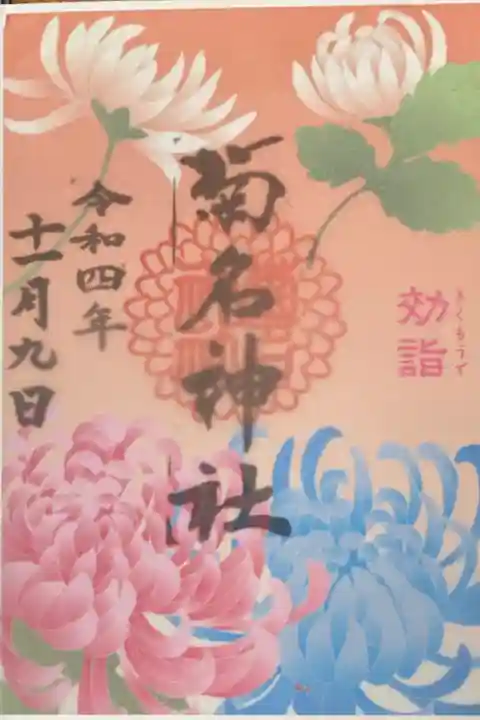 効詣
きくもうで
菊名神社
令和四年
十一月九日